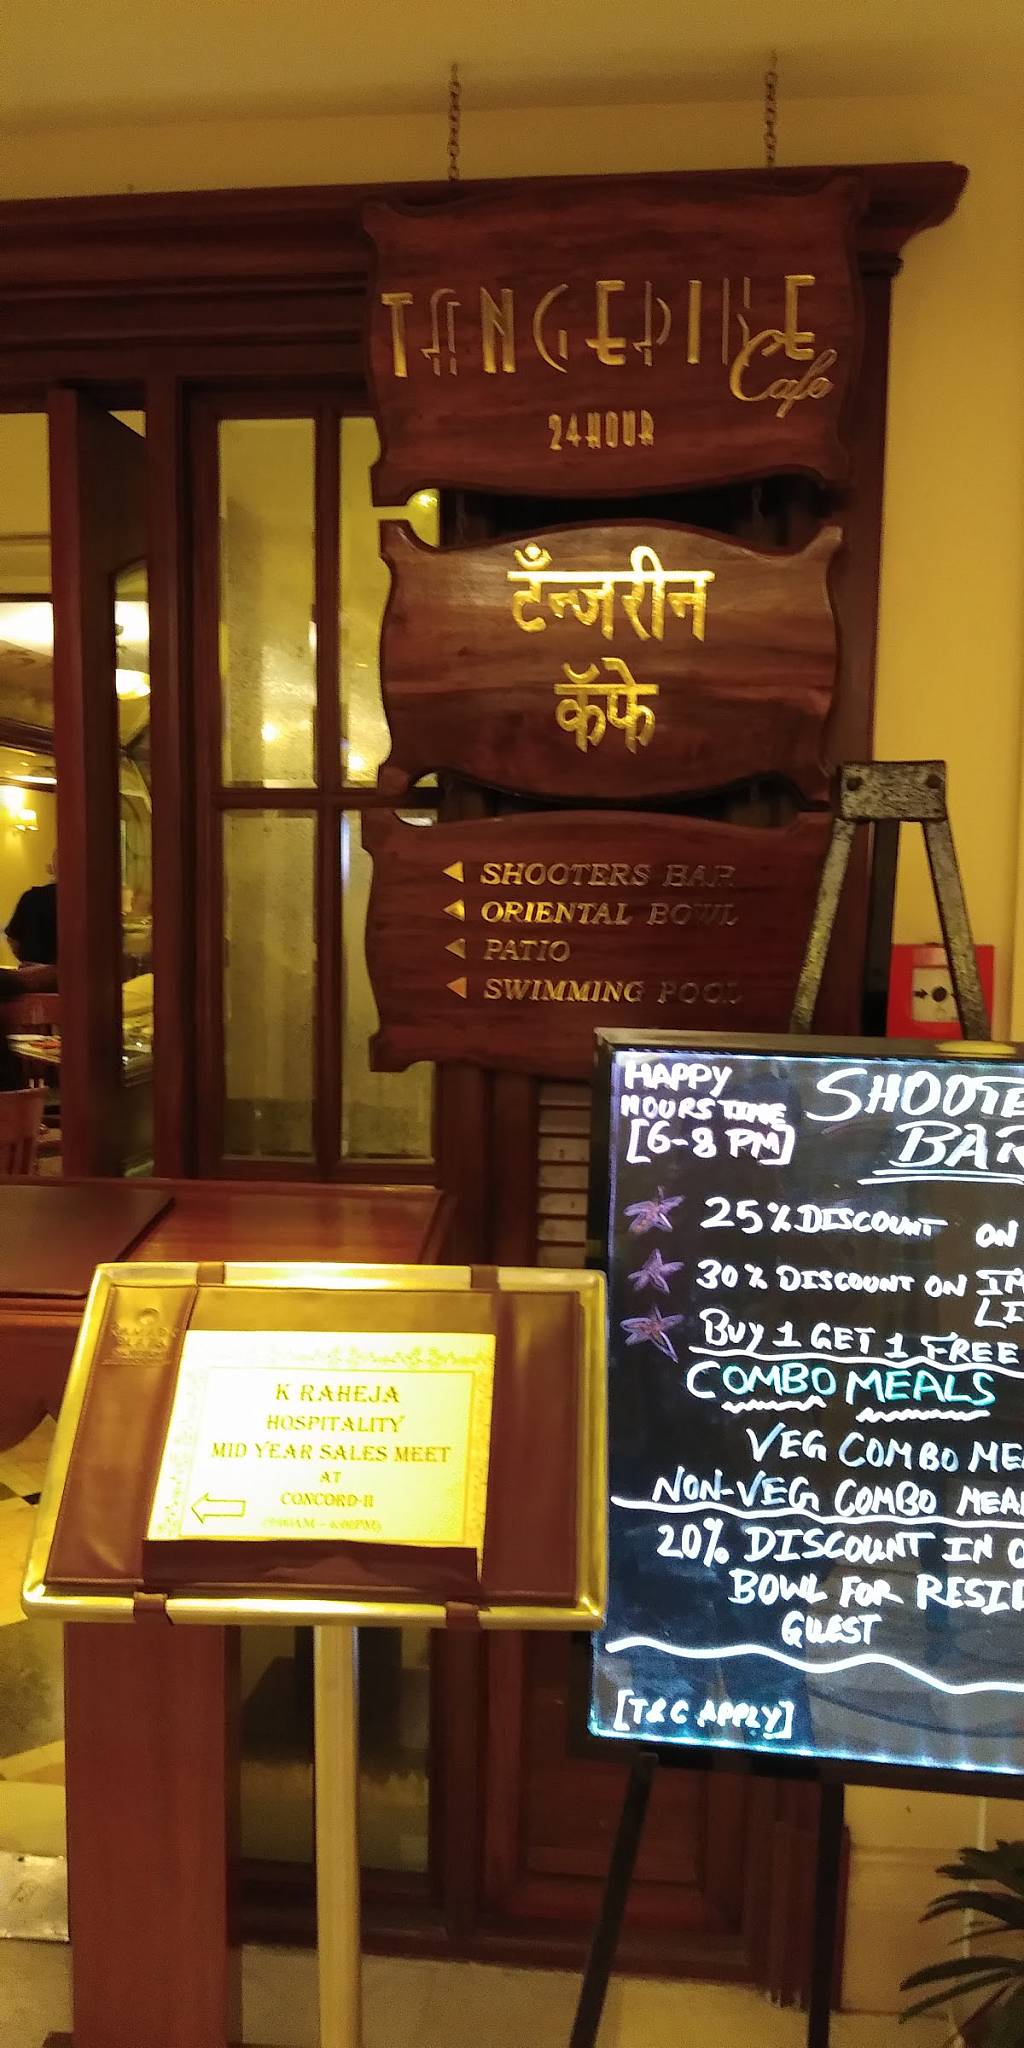 TANGERINE
Cafe
24 HOUR
टँन्जरीन
कॅफे
SHOOTERS BAR
ORIENTAL BOWL
PATIO
SWIMMING POOL
HAPPY
HOURS TIME
[6-8 PM]
SHOOTE
BAR
25% DISCOUNT ON
30% DISCOUNT ON IM
LI
BUY 1 GET 1 FREE
COMBO MEALS
VEG COMBO MEA
NON-VEG COMBO MEA
20% DISCOUNT IN O
BOWL FOR RESID
GUEST
[T&C APPLY]
K RAHEJA
HOSPITALITY
MID YEAR SALES MEET
AT
CONCORD-II